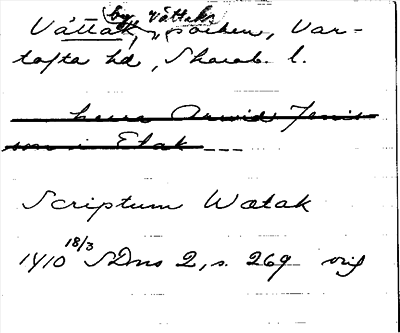 by Vättaks
Vättak, " socken, Var-
tofta hd, Skarab. l.
herr Arvid Jonis
son i Etak ---
Scriptum Wætak
1410 18/3 SDns 2, s. 269 orig